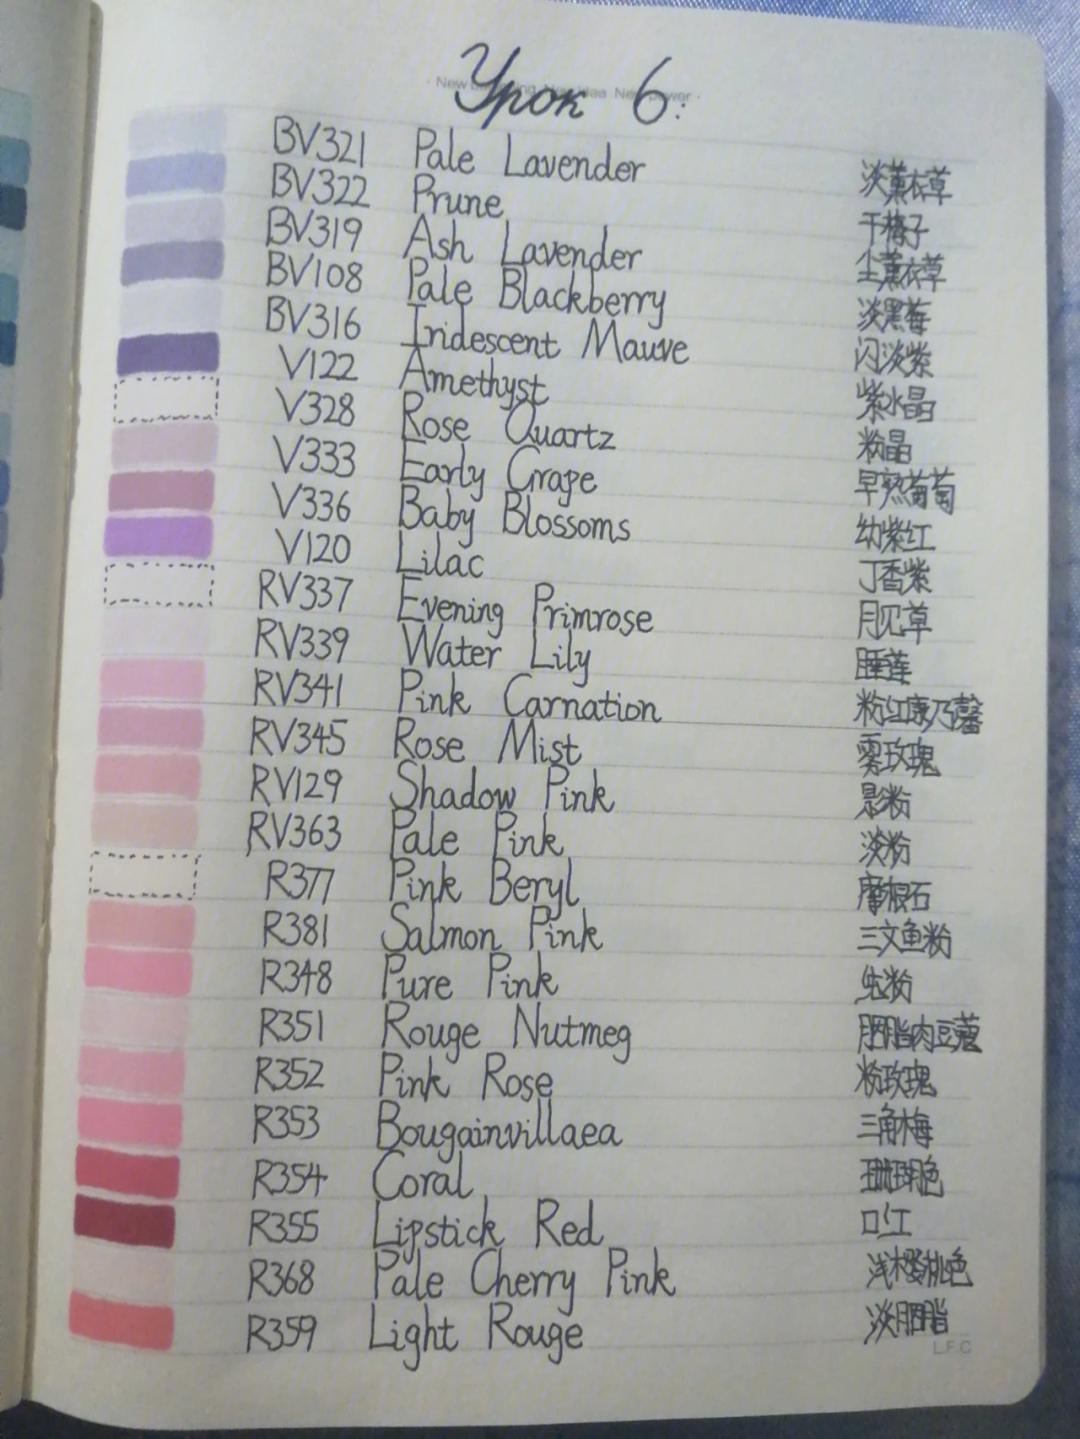 Урок 6:
BV321 Pale Lavender 淡薰衣草
BV322 Prune 干梅子
BV319 Ash Lavender 尘薰衣草
BV108 Pale Blackberry 淡黑莓
BV316 Iridescent Mauve 闪淡紫
V122 Amethyst 紫水晶
V328 Rose Quartz 粉晶
V333 Early Grape 早熟葡萄
V336 Baby Blossoms 幼紫红
V120 Lilac 丁香紫
RV337 Evening Primrose 月见草
RV339 Water Lily 睡莲
RV341 Pink Carnation 粉红康乃馨
RV345 Rose Mist 雾玫瑰
RV129 Shadow Pink 影粉
RV363 Pale Pink 淡粉
R377 Pink Beryl 摩根石
R381 Salmon Pink 三文鱼粉
R348 Pure Pink 纯粉
R351 Rouge Nutmeg 胭脂肉豆蔻
R352 Pink Rose 粉玫瑰
R353 Bougainvillaea 三角梅
R354 Coral 珊瑚色
R355 Lipstick Red 口红
R368 Pale Cherry Pink 浅樱桃色
R359 Light Rouge 淡胭脂
L.F.C